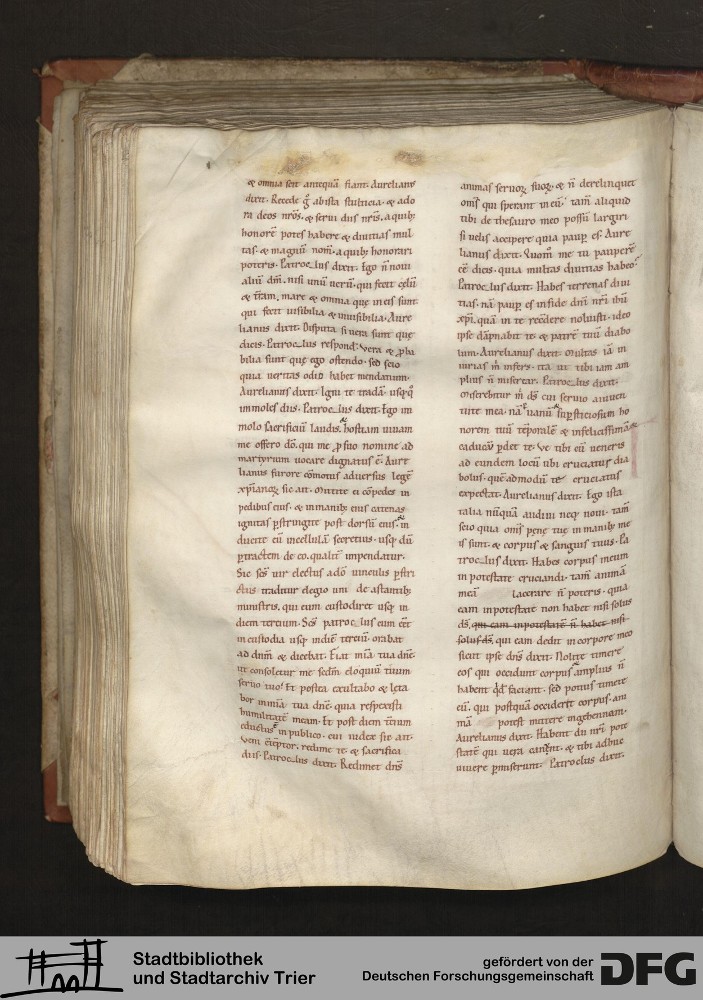 & omnia scit antequā fiant. Aurelianꝰ
dixit. Recede g̊ ab ista stulticia. & ado
ra deos nr̄os. & servi diis nr̄is. a quibꝫ
honorē potes habere & divitias mul
tas. & magnū nom̄. a quibꝫ honorari
poteris. Patroclus dixit. Ego n̄ novi
aliū dm̄. nisi unū verū. qui fecit cęlū
& t̄ram. mare & omnia que in eis sunt.
qui fecit visibilia & invisibilia. Aure
lianus dixit. Disputa si vera sunt quę
dicis. Patroclus respond. Vera & ꝓba
bilia sunt quę ego ostendo. sed scio
quia veritas odio habet mendatium.
Aurelianus dixit. Igni te tradā. usq̨q̊
immoles diis. Patroclus dixit. Ego im
molo sacrificiū laudis. hostiam vivam
me offero dō. qui me ꝓ suo nomine ad
martyrium vocare dignatus ē. Aure
lianus furore cōmotus adversus legē
xp̄ianoꝝ sic ait. Mittite ei cōpedes in
pedibus eius. & in manibꝫ eius catenas
ignitas ꝑstringite post dorsū eius. & in
ducite eū in cellulā secretius. usq̨ dū
ꝑtractem de eo. qualit̄ impendatur.
Sic sc̄s vir electus a dō vinculis ꝑstri
ctus traditur elegio uni de astantibꝫ
ministris. qui eum custodiret usq̨ in
diem tercium. Sc̄s patroclus cum eēt
in custodia usq̨ in diē terciū. orabat
ad dn̄m & dicebat. Fiat mīa tua dn̄e.
ut consoletur me scdm̄ eloquiū tuum
servo tuo. Et postea exultabo & leta
bor in mīa tua dn̄e. quia respexisti
humilitatē meam. Et post diem t̄cium
eductus ē in publico. cui iudex sic ait.
Veni redime te. & sacrifica
diis. Patroclus dixit. Redimet dn̄s
animas servoꝝ suoꝝ. & n̄ derelinquet
om̄s qui sperant in eū. tam̄ aliquid
tibi de thesauro meo possū largiri
si velis accipere quia paup̄ es. Aure
lianus dixit. Quom̊ me tu pauperē
eē dicis. quia multas divitias habeo.
Patroclus dixit. Habes terrenas divi
tias. nā paup̄ es in fide dn̄i nr̄i ihū
xp̄i. quā in te recędere noluisti. ideo
ipse dāpnabit te & patrē tuū diabo
lum. Aurelianus dixit. Multas iā in
iurias m̄ infers. ita ut tibi iam am
plius n̄ miserear. Patroclus dixit.
Miserebitur m̄ ds̄ cui servio a iuven
tute mea. nā vanū & supersticiosum ho
norem tuū tēporalē & infelicissimā &
caducū ꝑdet te. Ve tibi cū veneris
ad eundem locū ubi cruciatur dia
bolus. quę admodū te cruciatus
expectat. Aurelianus dixit. Ego ista
talia nūquā audivi neq̨ novi. tam̄
scio quia om̄s penę tuę in manibꝫ me
is sunt. & corpus & sanguis tuus. Pa
troclus dixit. Habes corpus meum
in potestate cruciandi. tam̄ animā
meā lacerare n̄ poteris. quia
eam in potestate non habet nisi solus
ds̄. qui eam in potestatē n̄ habet nisi
solus ds̄ qui eam dedit in corpore meo
sicut ipse dn̄s dixit. Nolite timere
eos qui occidunt corpus & amplius n̄
habent qd̄ faciant. sed potius timete
eū. qui postquā occiderit corpus. ani
mā potest mittere in gehennam.
Aurelianus dixit. Habent dii nr̄i pote
statē qui vera canunt. & tibi adhuc
vivere ꝑmiserunt. Patroclus dixit.
Stadtbibliothek
und Stadtarchiv Trier
gefördert von der
Deutschen Forschungsgemeinschaft
DFG